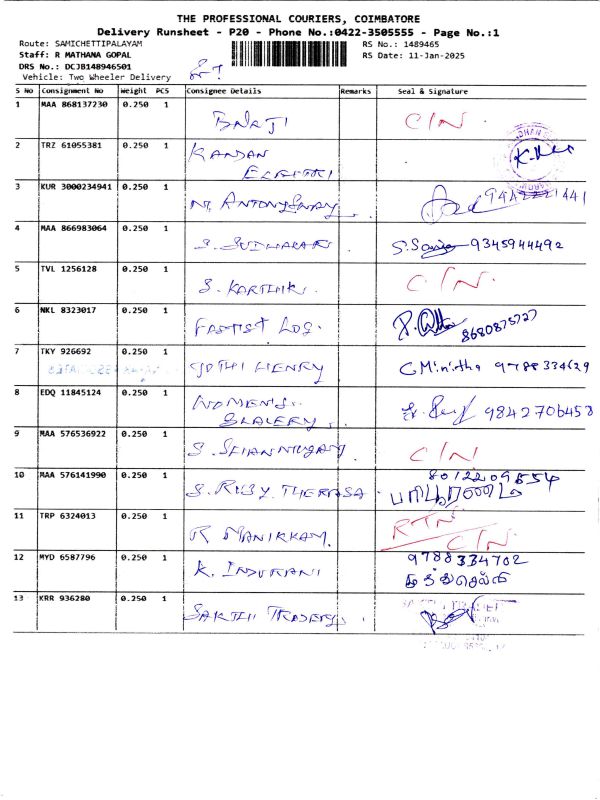 THE PROFESSIONAL COURIERS, COIMBATORE
Delivery Runsheet - P20 - Phone No.:0422-3505555 - Page No.:1
Route: SAMICHETTIPALAYAM
RS No.: 1489465
Staff: R MATHANA GOPAL
RS Date: 11-Jan-2025
DRS No.: DCJB148946501
Vehicle: Two Wheeler Delivery
S No Consignment No Weight PCS Consignee Details Remarks Seal & Signature
1 MAA 868137230 0.250 1 BALAJI C/N.
2 TRZ 61055381 0.250 1 KANDAN
3 KUR 3000234941 0.250 1 M. ANTONY
4 MAA 866983064 0.250 1 S. SUDHAKAR 9345944492
5 TVL 1256128 0.250 1 S. KARTHIK. C/N.
6 NKL 8323017 0.250 1 FASTIST LOG. 8680875727
7 TKY 926692 0.250 1 JOTHI HENRY 9788334629
8 EDQ 11845124 0.250 1 WOMEN'S 9842706458
9 MAA 576536922 0.250 1 S. SHANMUGAM C/N
10 MAA 576141990 0.250 1 S. RUBY THERASA 8012209554
11 TRP 6324013 0.250 1 R MANIKKAM. RTN C/N.
12 MYD 6587796 0.250 1 K. INDURANI 9788334702
முத்துசெல்வி
13 KRR 936280 0.250 1 SAKTHI TRADERS